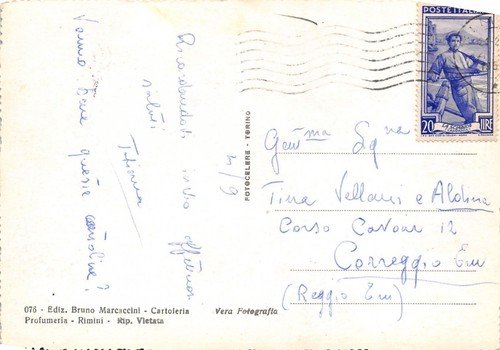 Ricordandoti invio affettuosi
saluti
Tiziana
4/9
Vanno bene queste cartoline?
FOTOCELERE - TORINO
POSTE ITALIANE
20 LIRE
Gent.ma Sg.na
Tina Vellani e Aldina
Corso Cavour 12
Correggio Em
(Reggio Em)
076 - Ediz. Bruno Marcaccini - Cartoleria
Profumeria - Rimini - Rip. Vietata
Vera Fotografia